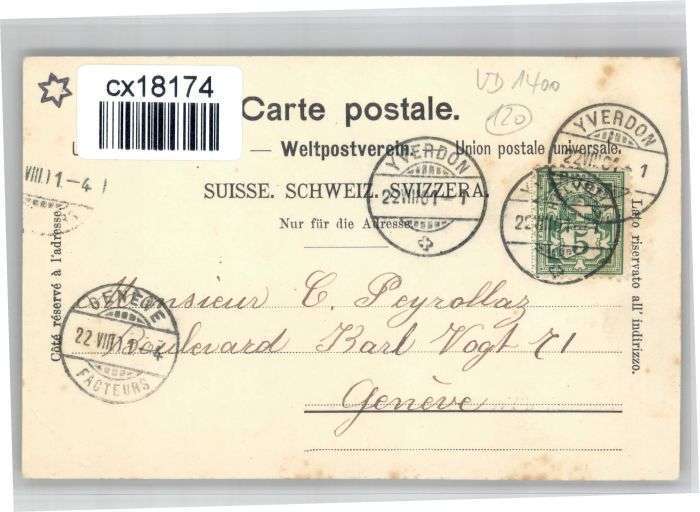 cx18174
VD 1400
120
Carte postale.
— Weltpostverein. — Union postale universale.
SUISSE. SCHWEIZ. SVIZZERA.
Nur für die Adresse.
Côté réservé à l'adresse.
Lato riservato all' indirizzo.
VIII 1 - 4
YVERDON
22 VIII 01 - 1
YVERDON
22 VIII 01 1
HELVETIA
5
Monsieur C. Peyrollaz
Boulevard Karl Vogt 71
Genève
GENÈVE
22 VIII 4
FACTEURS